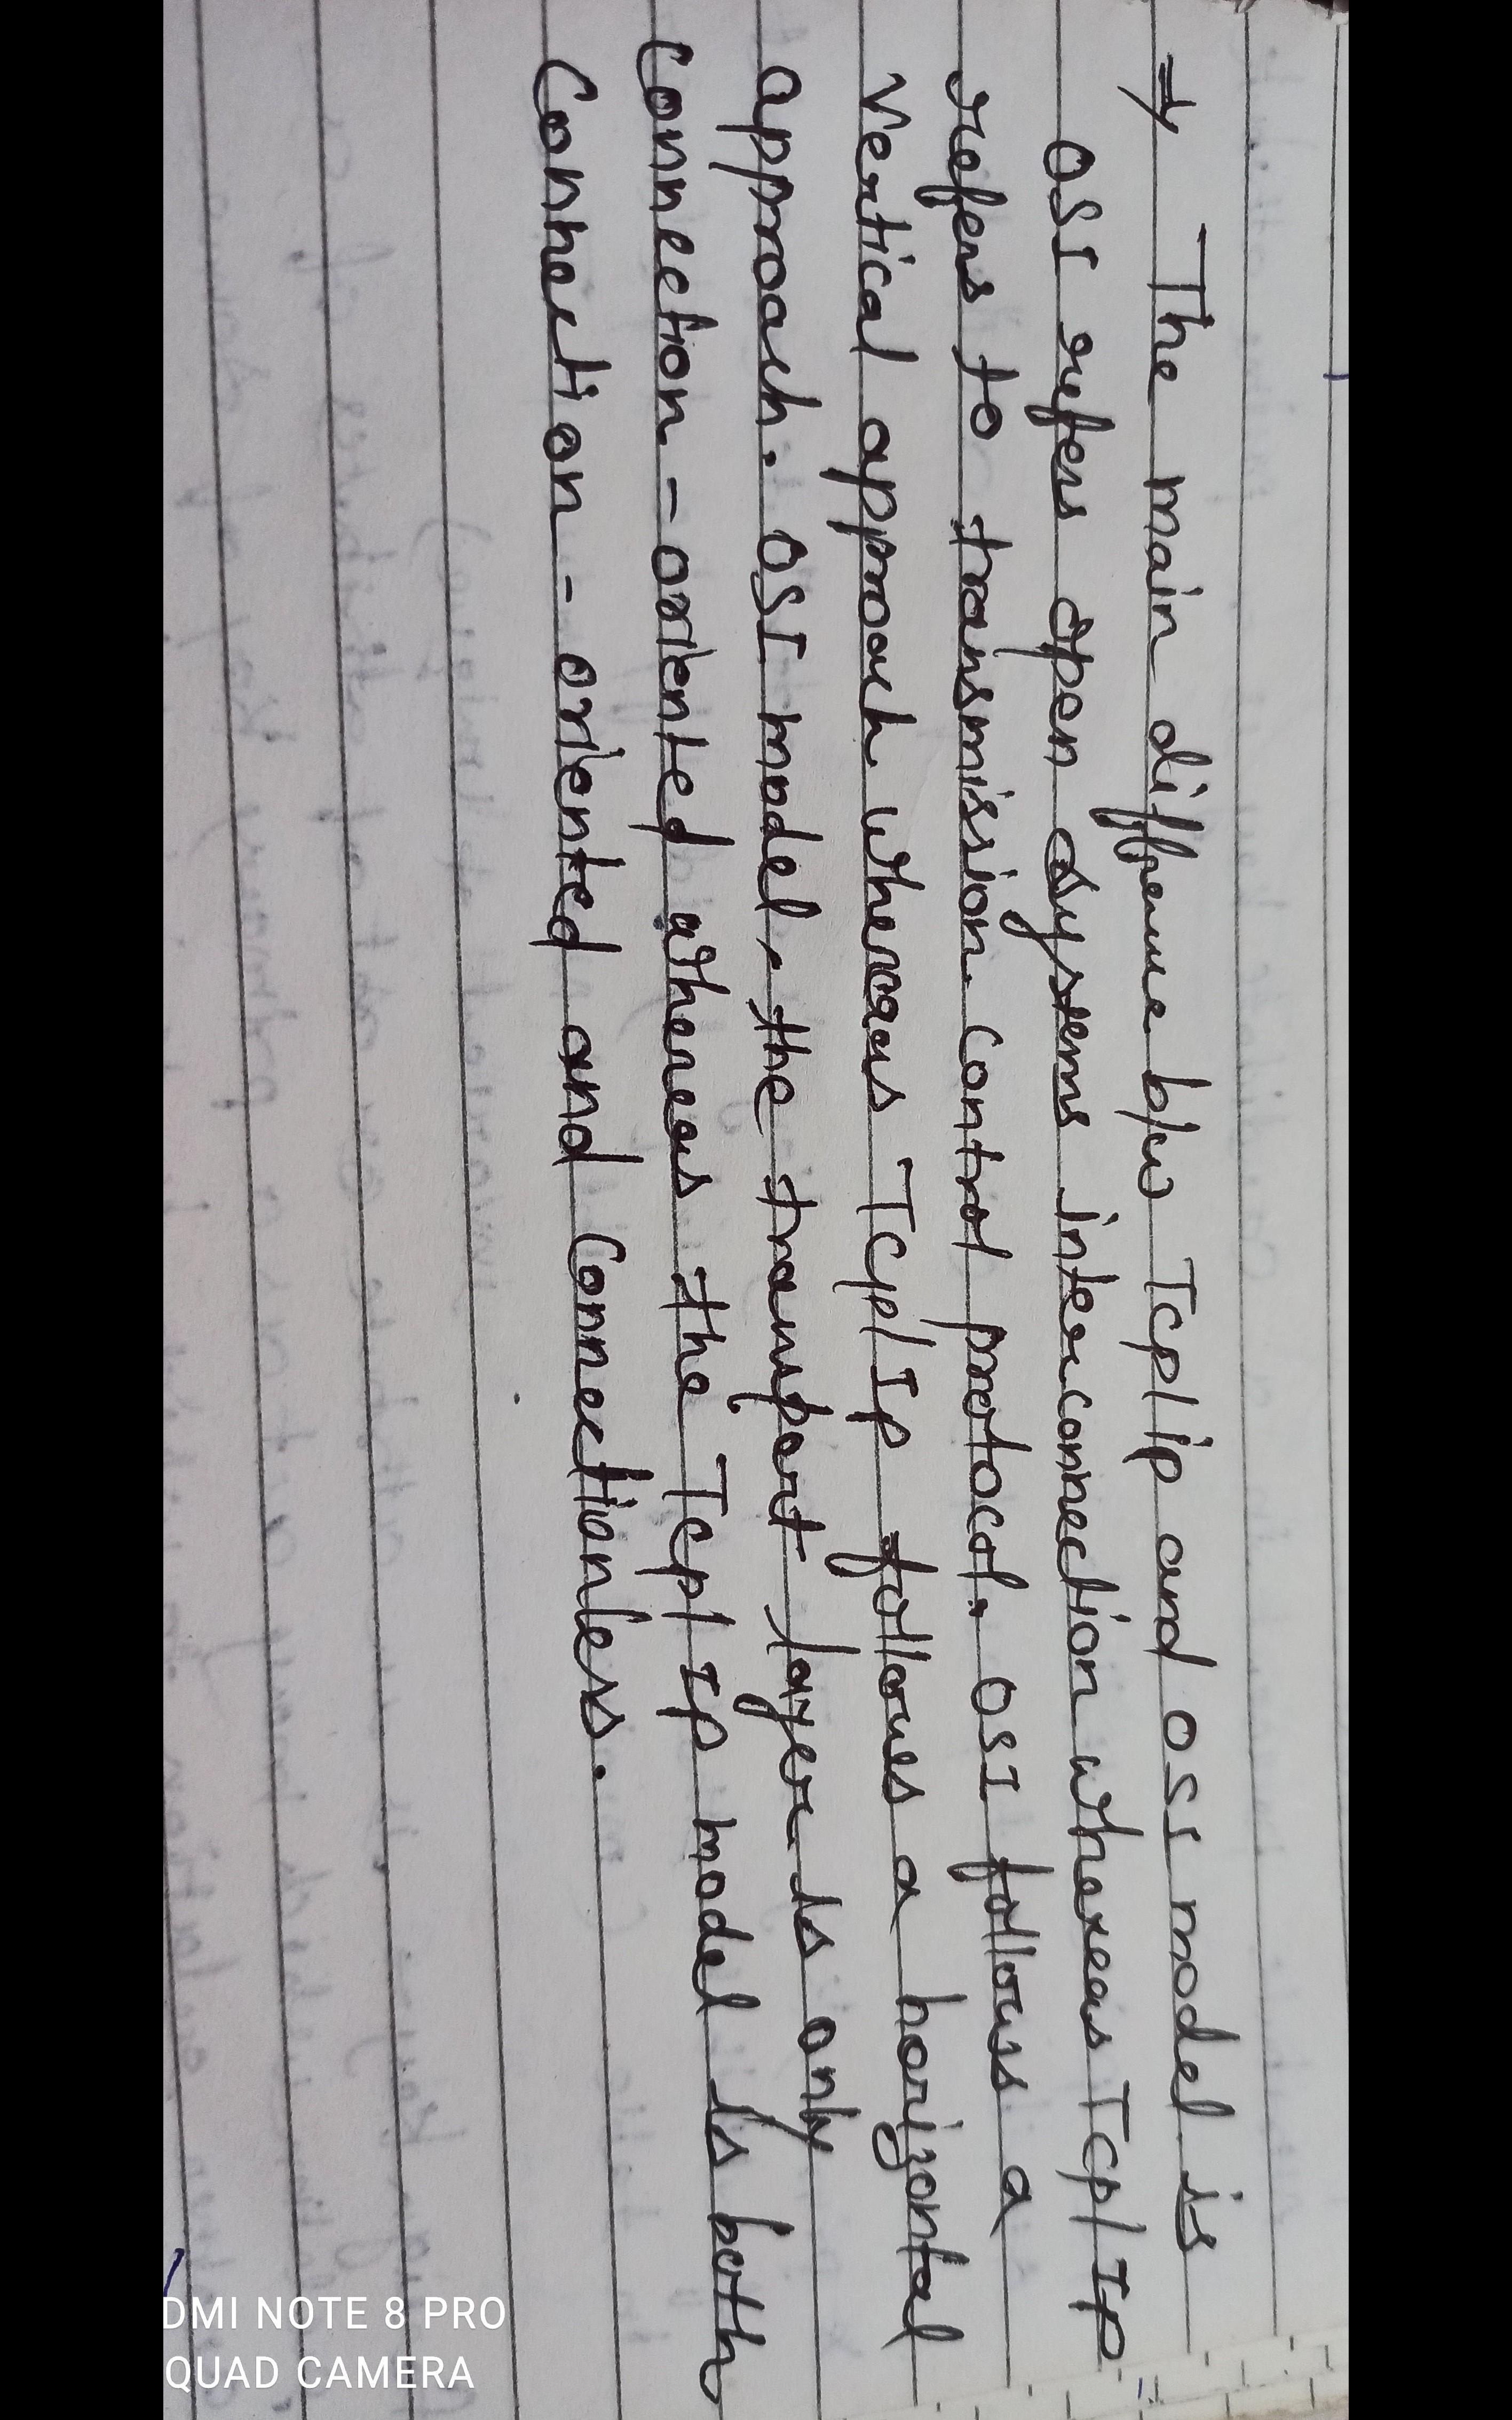 ⇒ The main difference b/w Tcp/ip and OSI model is
OSI refers open systems interconnection whereas Tcp/IP
refers to transmission control protocol. OSI follows a
vertical approach whereas Tcp/IP follows a horizontal
approach. OSI model, the transport layer is only
connection-oriented whereas the Tcp/IP model is both
connection-oriented and connectionless.
DMI NOTE 8 PRO
QUAD CAMERA